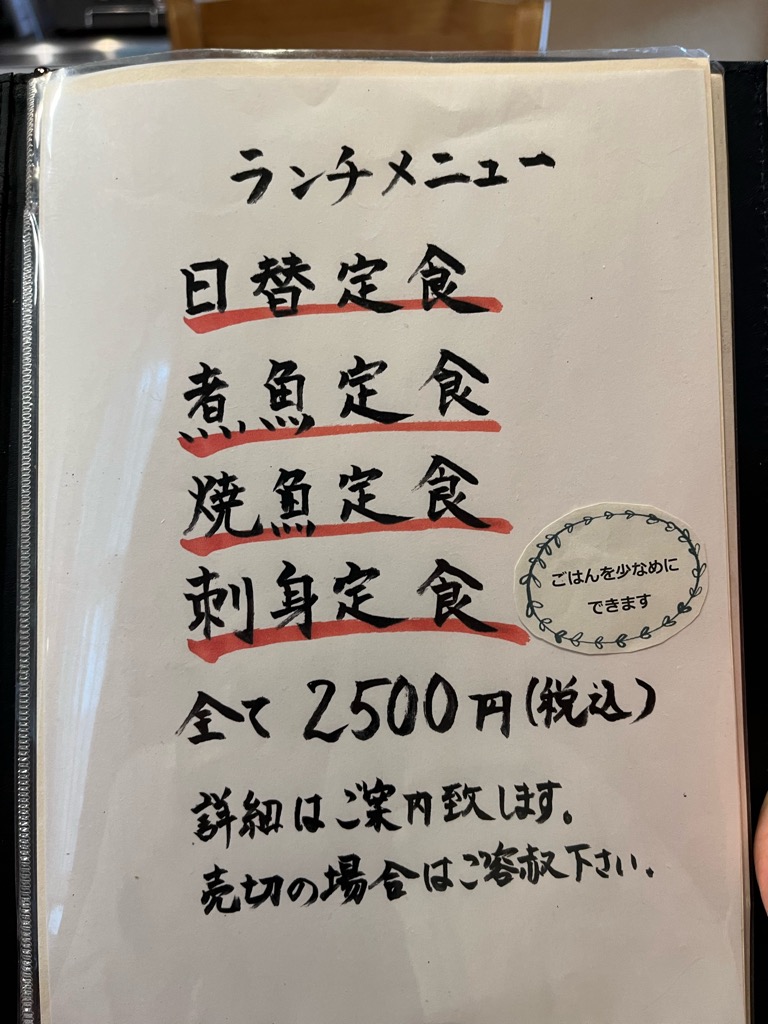 ランチメニュー
日替定食
煮魚定食
焼魚定食
刺身定食
ごはんを少なめに
できます
全て2500円(税込)
詳細はご案内致します。
売切の場合はご容赦下さい。